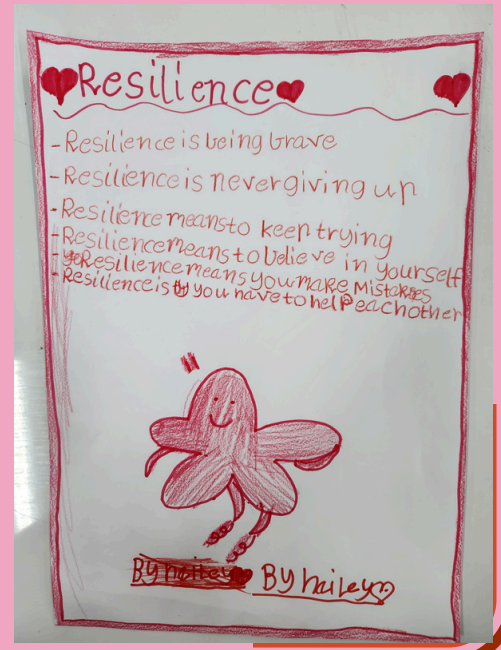 Resilience
- Resilience is being brave
- Resilience is never giving up
- Resilience means to keep trying
- Resilience means to believe in yourself
- Resilience means you make Mistakes
- Resilience is you have to help each other
By hailey
By hailey